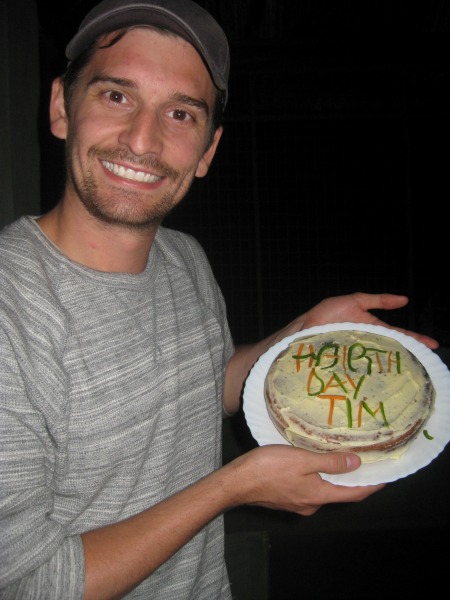 H BIRTH
DAY
TIM